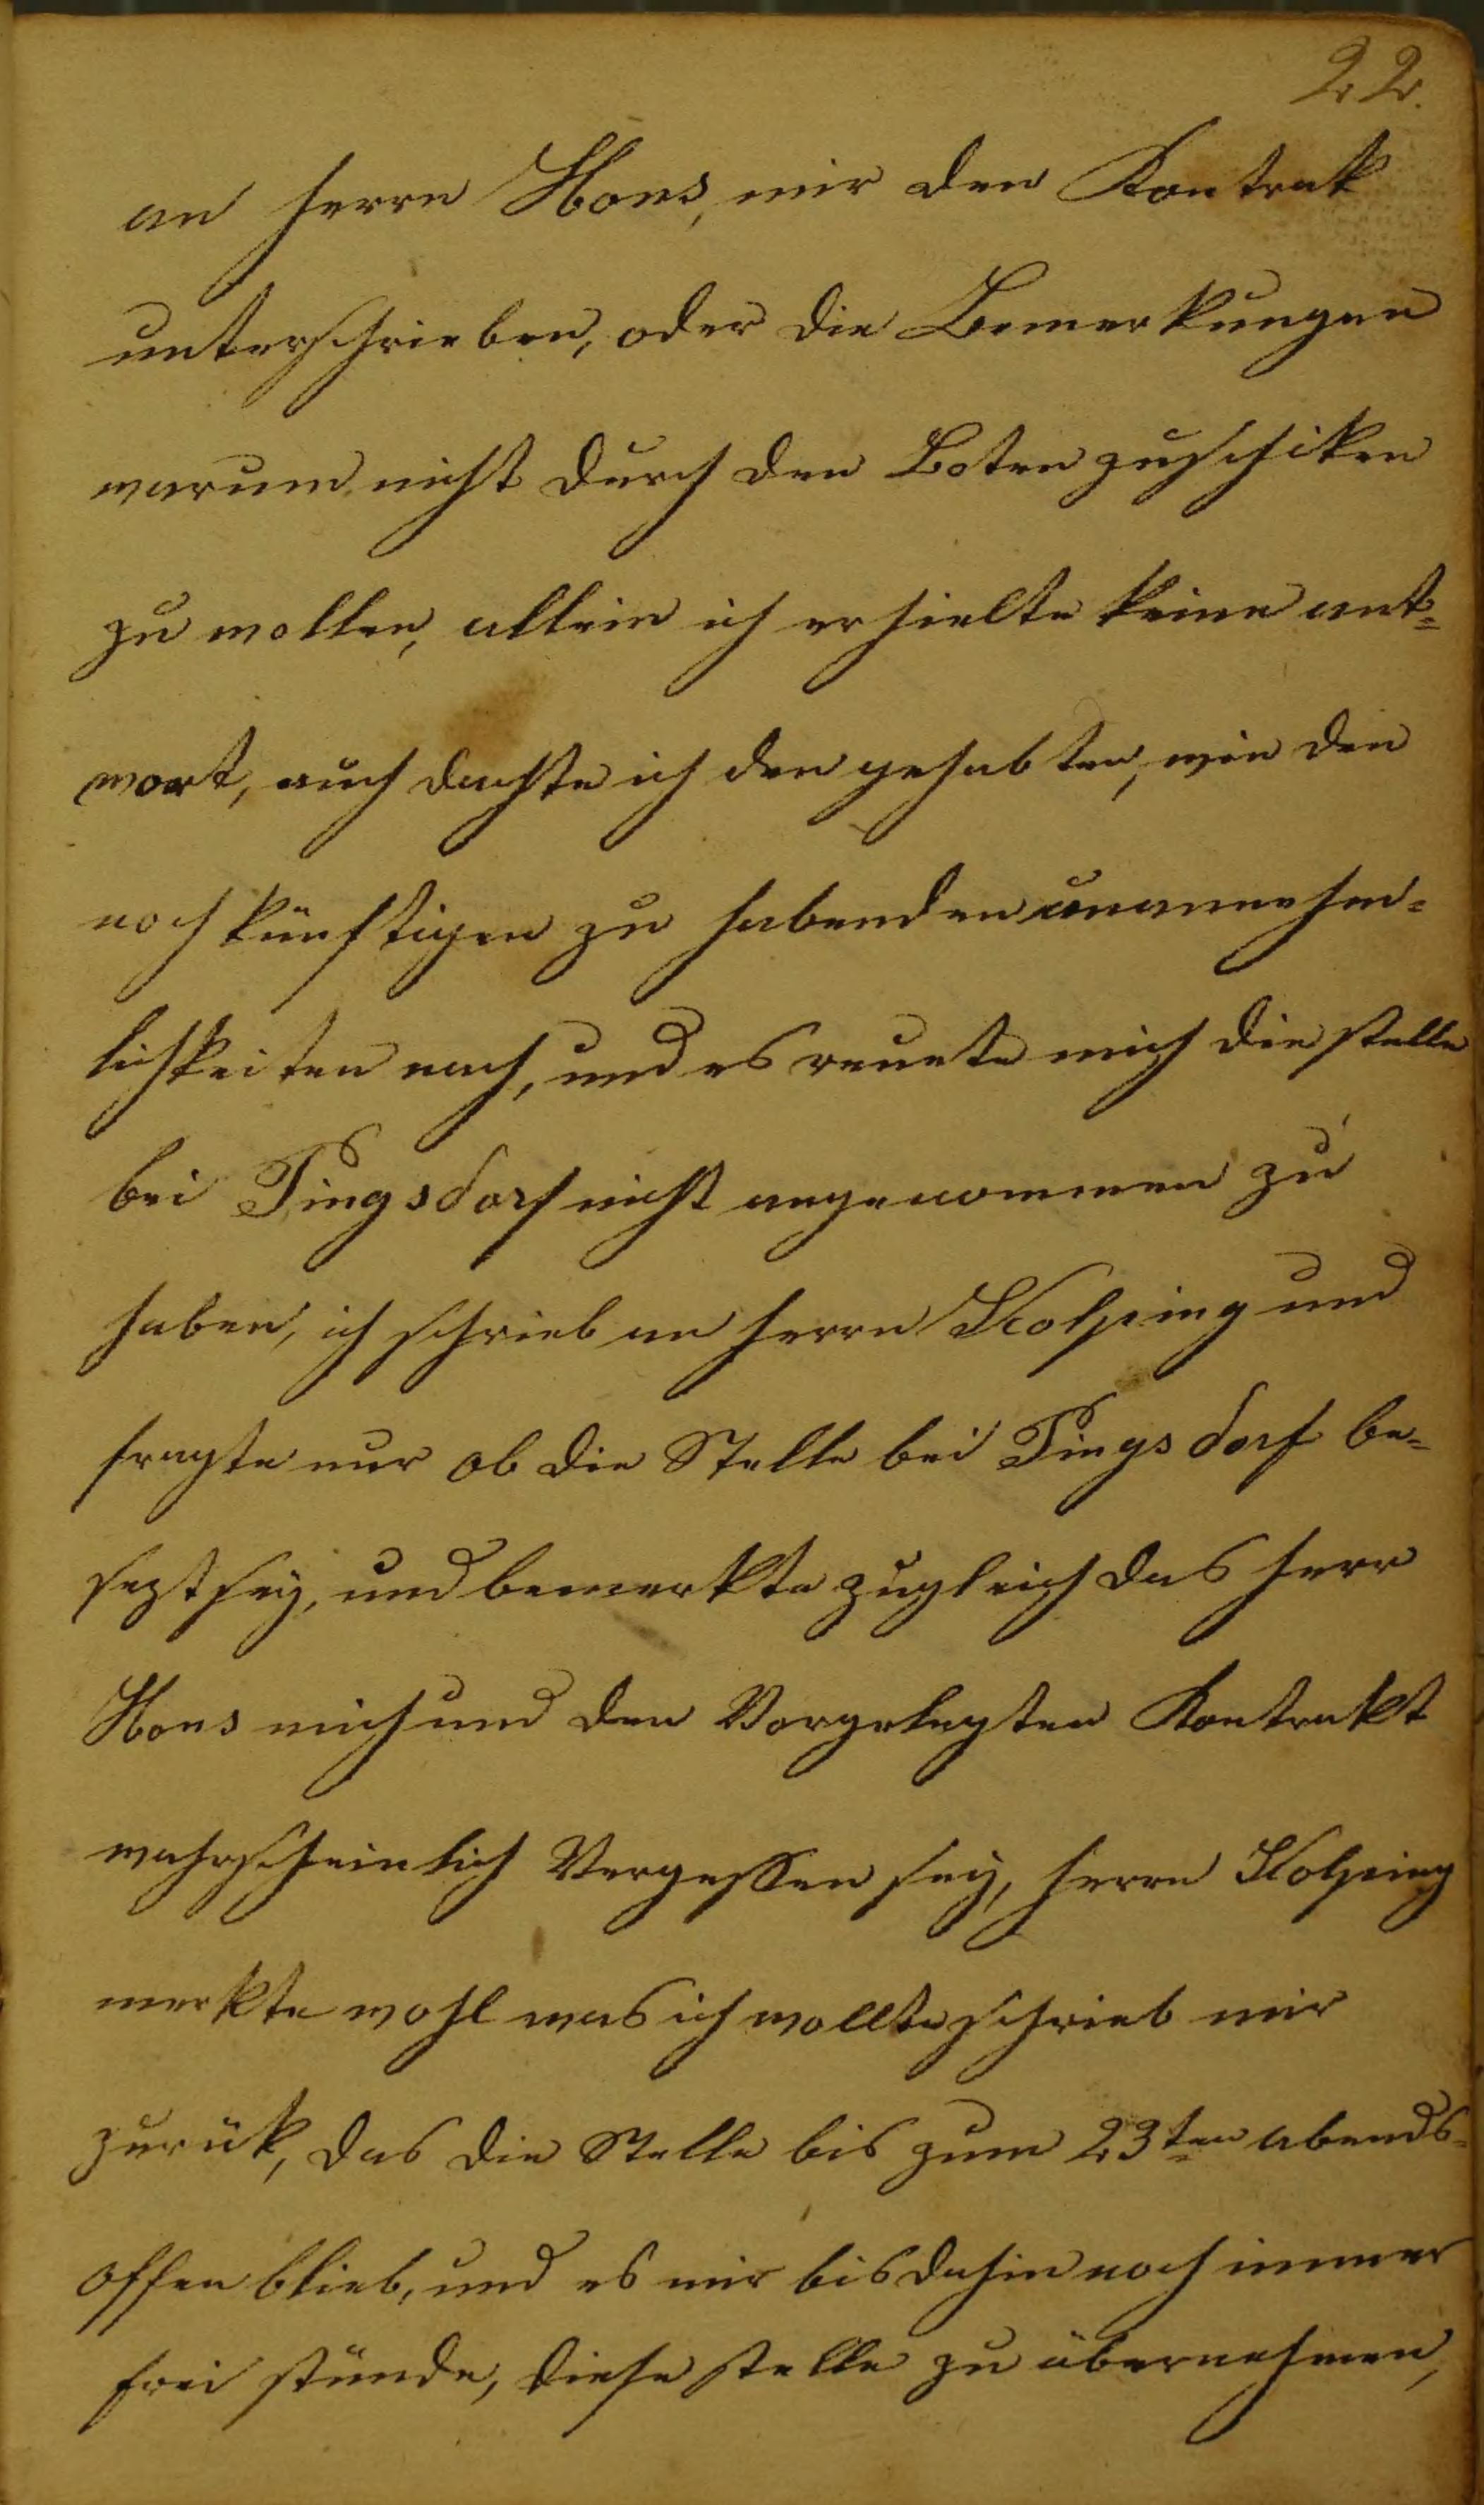 22.
an herrn Hons, mir den Kontrak
unterschrieben, oder die Bemerkungen
warum nicht durch den Boten zuschiken
zu wollen, allein ich erhielte keine ant=
wort, auch dachte ich den gehabten, wie den
noch künftigen zu habenden unannehm=
lichkeiten nach, und es reuete mich die stelle
bei Pingsdorf nicht angenommen zu
haben, ich schrieb an herrn Kolping und
fragte nur ob die Stelle bei Pingsdorf be=
sezt sey, und bemerkte zugleich das herr
Hons mich und den Vorgelegten Kontrakt
wahrscheinlich Vergessen sey, herrn Kolping
merkte wohl was ich wollte schrieb mir
zurük, das die Stelle bis zum 23ten abends=
offen blieb, und es mir bis dahin noch immer
frei stünde, diese stelle zu übernehmen,